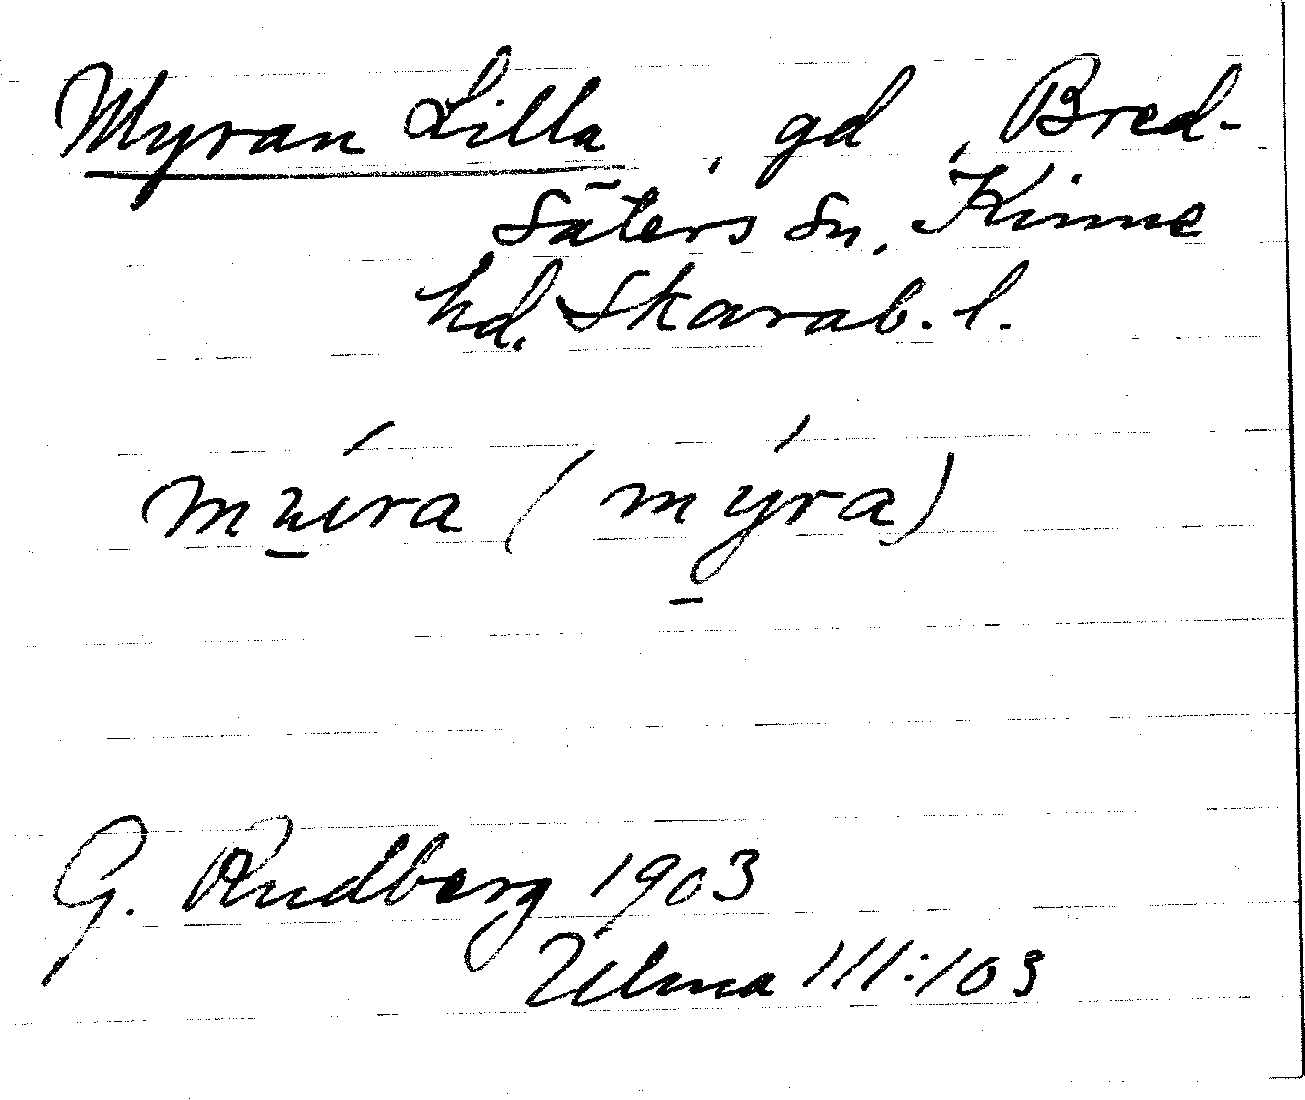 Myran Lilla, gd, Bred-
säters sn, Kinne
hd. Skarab. l.
(mýra)
G. Rudberg 1903
Ulma 111:103